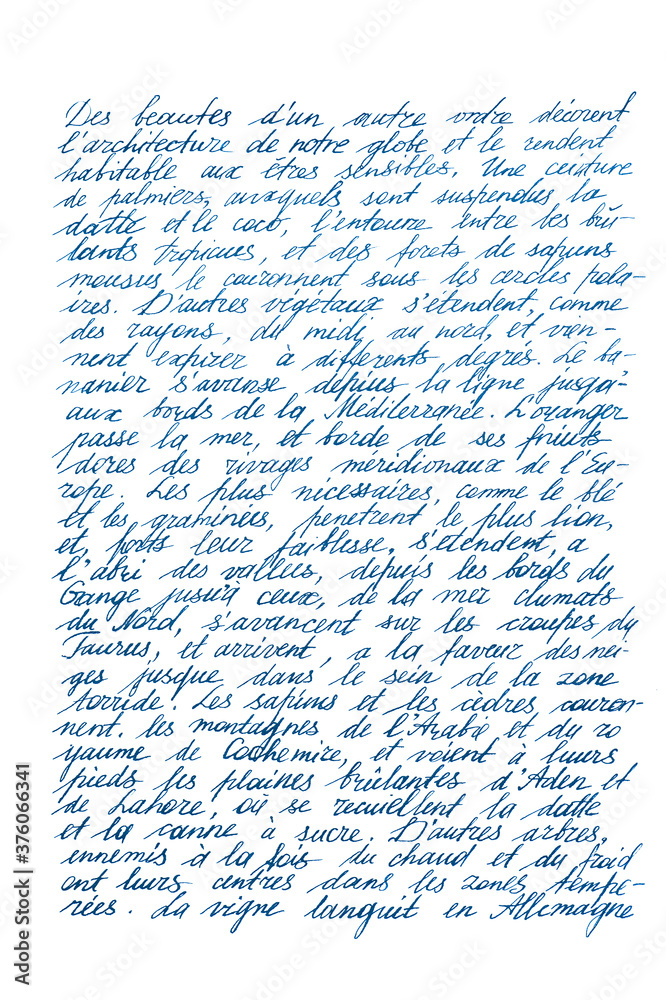 Des beautes d'un autre ordre décorent
l'architecture de notre globe et le rendent
habitable aux êtres sensibles. Une ceinture
de palmiers, auxquels sont suspendus la
datte et le coco, l'entoure entre les brû-
lants tropiques, et des forets de sapins
mousses le couronnent sous les cercles pola-
ires. D'autres végétaux s'étendent, comme
des rayons, du midi au nord, et vien-
nent expirer à differents degres. Le ba-
nanier s'avanse depius la ligne jusqu'
aux bords de la Méditerranée. L'oranger
passe la mer, et borde de ses fruits
dores des rivages méridionaux de l'Eu-
rope. Les plus nécessaires, comme le blé
et les graminées, penetrent le plus lion,
et, forts leur faiblesse, s'etendent, a
l'abri des vallees, depuis les bords du
Gange jusu'a ceux, de la mer climats
du Nord, s'avancent sur les croupes du
Taurus, et arrivent, a la faveur des nei-
ges jusque dans le sein de la zone
torride. Les sapins et les cèdres couron-
nent. les montagnes de l'Arabie et du ro
yaume de Cachemire, et voient à leurs
pieds les plaines brûlantes d'Aden et
de Lahore, où se recuellent la datte
et la canne à sucre. D'autres arbres,
ennemis à la fois du chaud et du froid
ont leurs centres dans les zones tempe-
rées. La vigne languit en Allemagne
Adobe Stock
#376066341